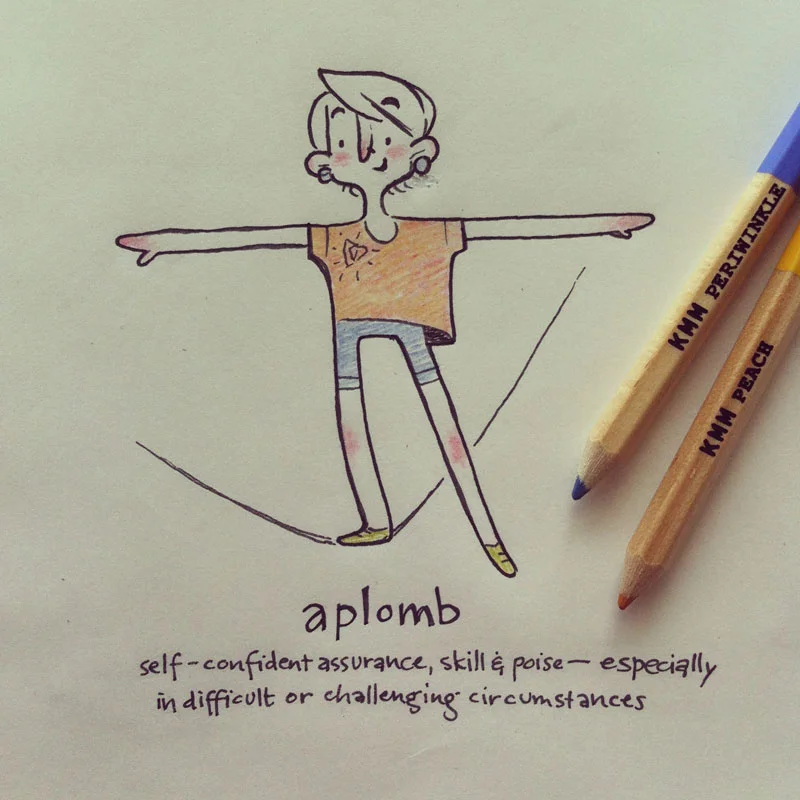 KMM PERIWINKLE
KMM PEACH
aplomb
self-confident assurance, skill & poise — especially
in difficult or challenging circumstances